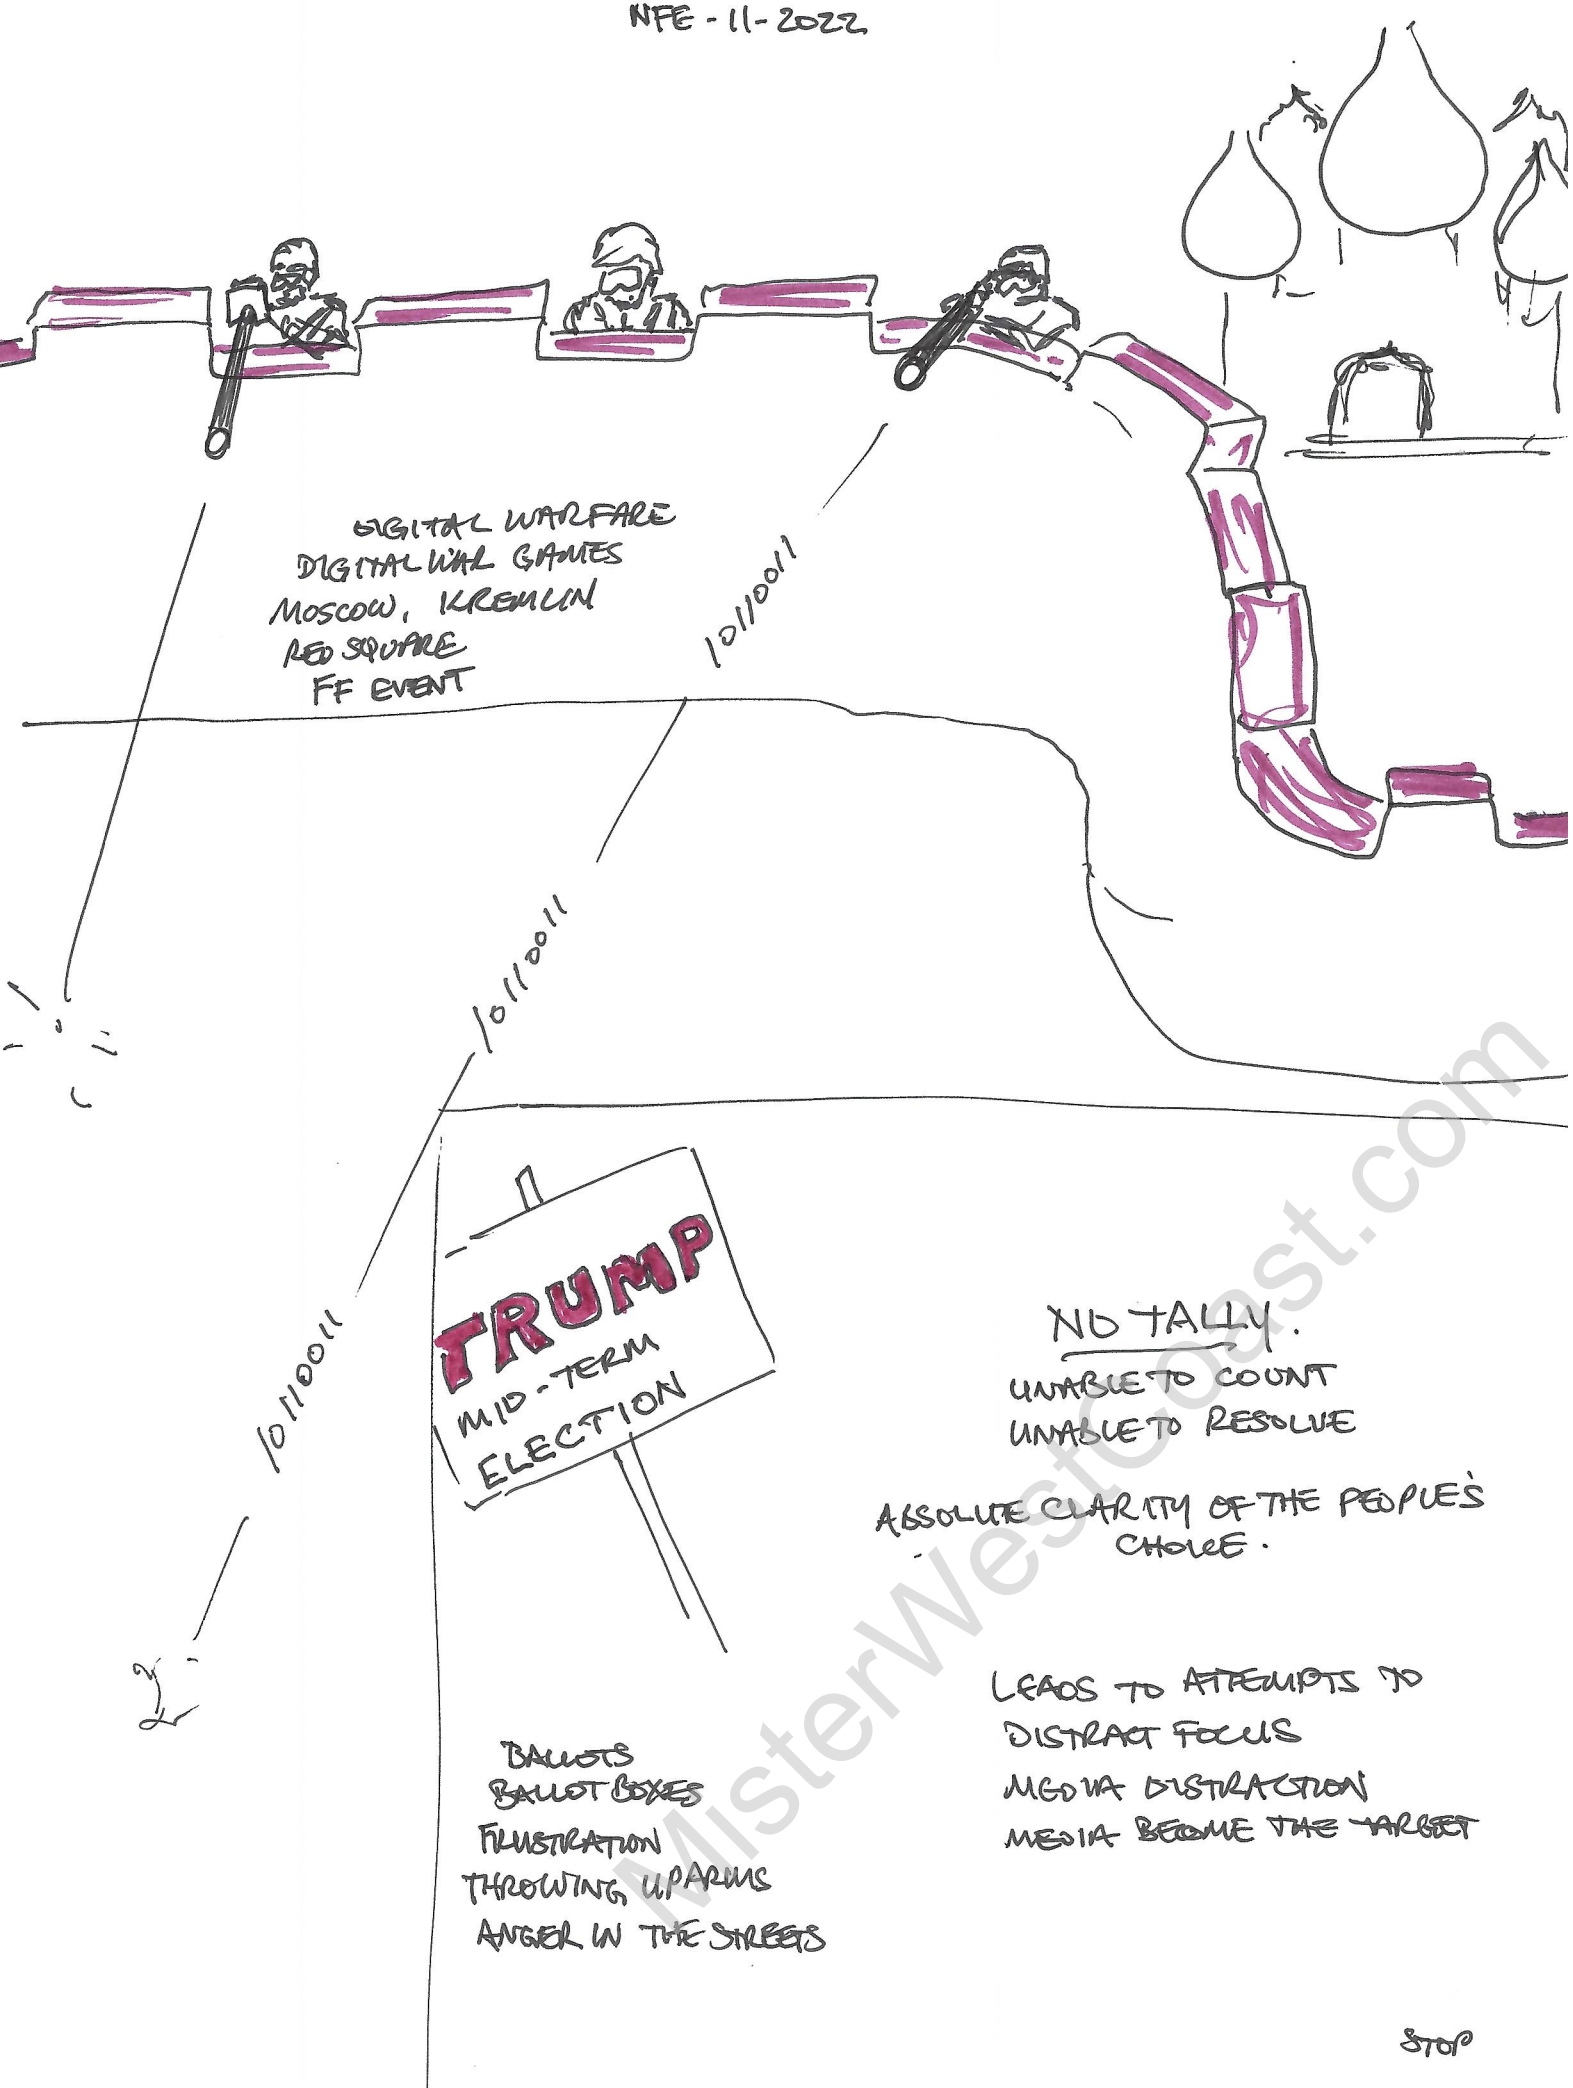 NFE - 11 - 2022
DIGITAL WARFARE
DIGITAL WAR GAMES
MOSCOW, KREMLIN
RED SQUARE
FF EVENT
10110011
10110011
10110011
TRUMP
MID-TERM
ELECTION
NO TALLY.
UNABLE TO COUNT
UNABLE TO RESOLVE
ABSOLUTE CLARITY OF THE PEOPLE'S
CHOICE.
LEADS TO ATTEMPTS TO
DISTRACT FOCUS
MEDIA DISTRACTION
MEDIA BECOME THE TARGET
BALLOTS
BALLOT BOXES
FRUSTRATION
THROWING UP ARMS
ANGER IN THE STREETS
STOP
MisterWestCoast.com